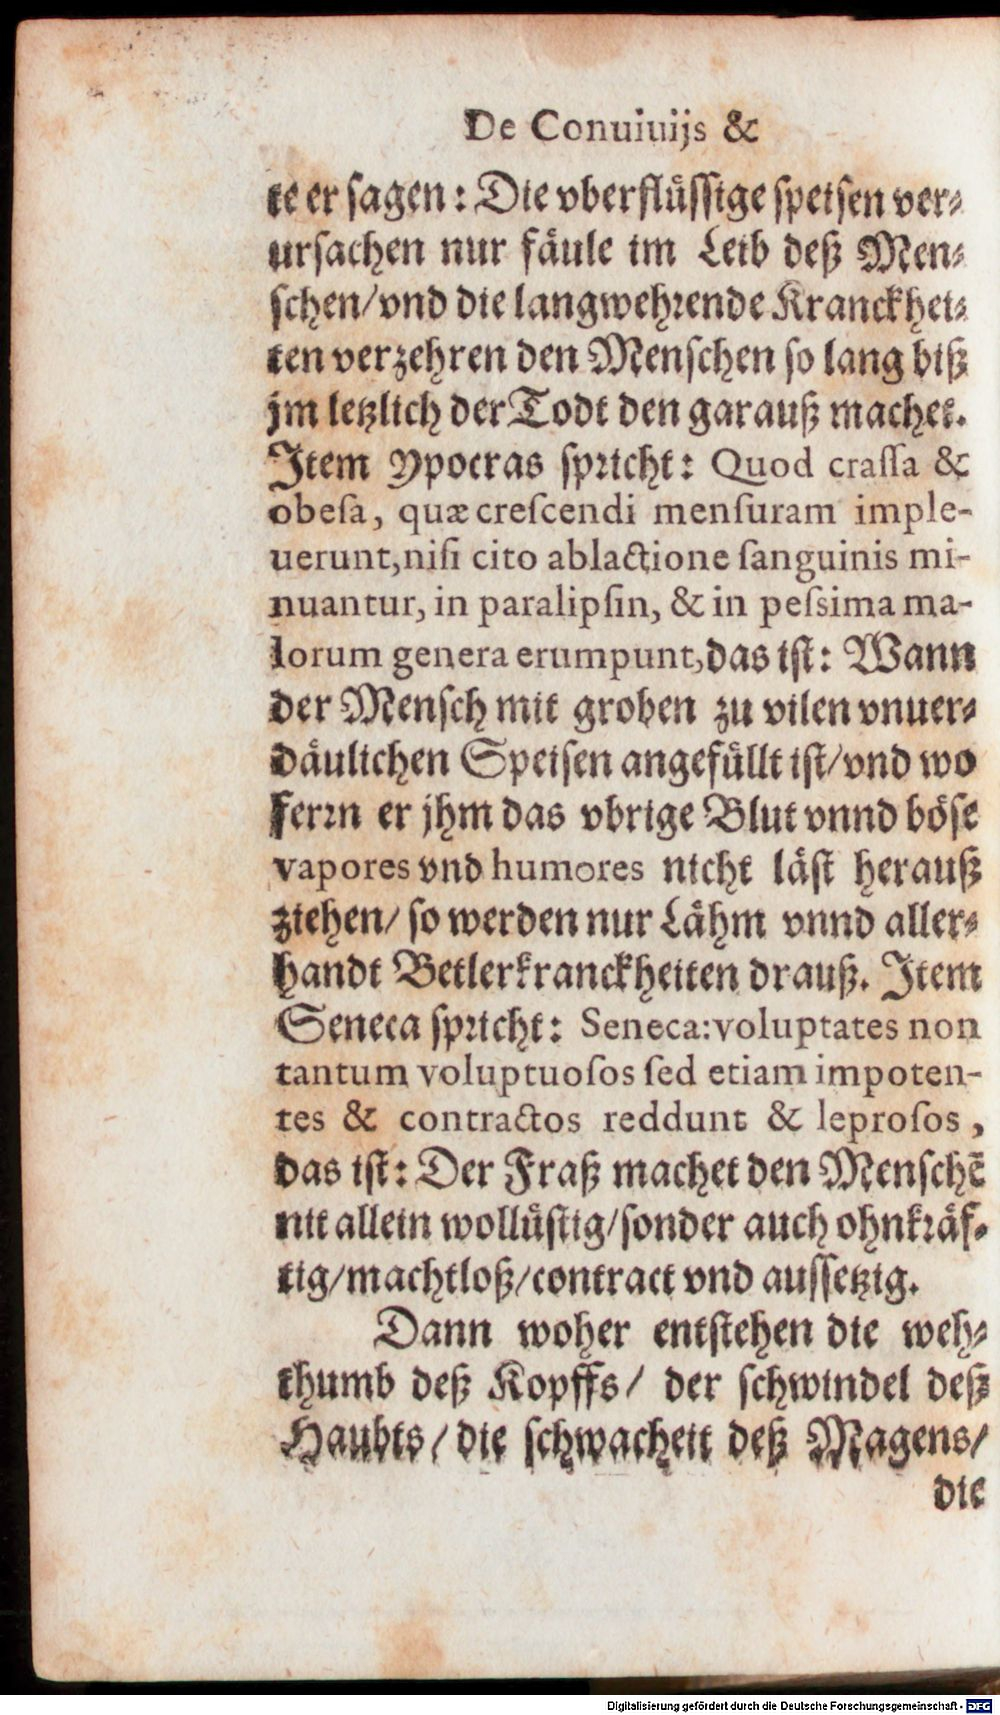 De Conuiuijs &
te er sagen: Die vberflüssige speisen ver-
ursachen nur fäule im Leib deß Men-
schen/vnd die langwehrende Kranckhei-
ten verzehren den Menschen so lang biß
jm letzlich der Todt den garauß machet.
Item Ypocras spricht: Quod crassa &
obesa, quæ crescendi mensuram imple-
uerunt, nisi cito ablactione sanguinis mi-
nuantur, in paralipsin, & in pessima ma-
lorum genera erumpunt, das ist: Wann
der Mensch mit groben zu vilen vnuer-
däulichen Speisen angefüllt ist/vnd wo
ferrn er jhm das vbrige Blut vnnd böse
vapores vnd humores nicht läst herauß
ziehen/ so werden nur Lähm vnnd aller-
handt Betlerkranckheiten drauß. Item
Seneca spricht: Seneca: voluptates non
tantum voluptuosos sed etiam impoten-
tes & contractos reddunt & leprosos,
das ist: Der Fraß machet den Menschẽ
nit allein wollüstig/sonder auch ohnkräf-
tig/machtloß/contract vnd aussetzig.
Dann woher entstehen die weh-
thumb deß Kopffs/ der schwindel deß
Haubts/ die schwacheit deß Magens/
die
Digitalisierung gefördert durch die Deutsche Forschungsgemeinschaft - DFG